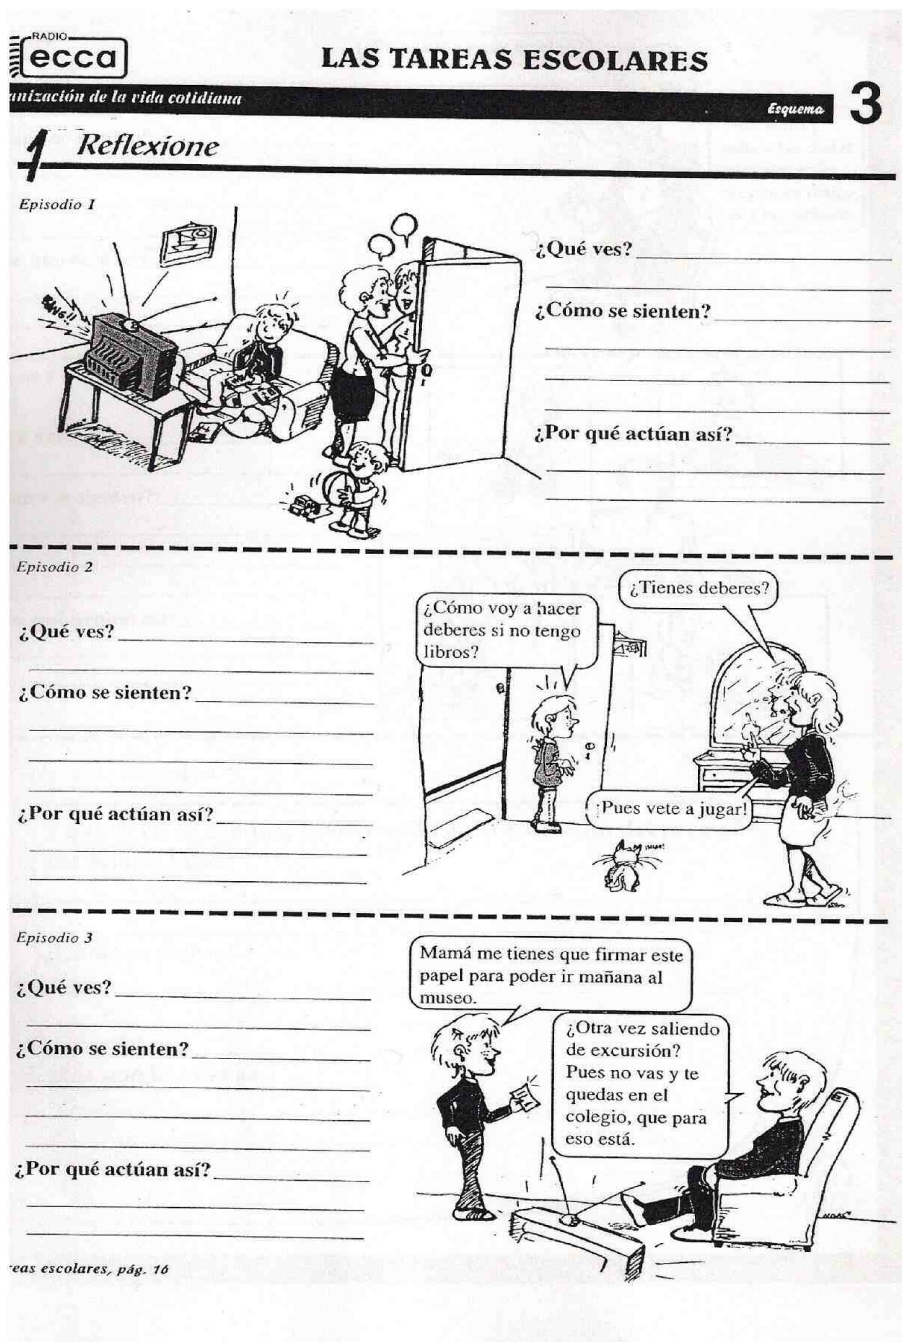 RADIO
ecca
LAS TAREAS ESCOLARES
anización de la vida cotidiana
Esquema 3
1 Reflexione
Episodio 1
BANG!!
¿Qué ves?
¿Cómo se sienten?
¿Por qué actúan así?
Episodio 2
¿Qué ves?
¿Cómo se sienten?
¿Por qué actúan así?
¿Cómo voy a hacer
deberes si no tengo
libros?
¿Tienes deberes?
¡Pues vete a jugar!
Episodio 3
¿Qué ves?
¿Cómo se sienten?
¿Por qué actúan así?
Mamá me tienes que firmar este
papel para poder ir mañana al
museo.
¿Otra vez saliendo
de excursión?
Pues no vas y te
quedas en el
colegio, que para
eso está.
reas escolares, pág. 16